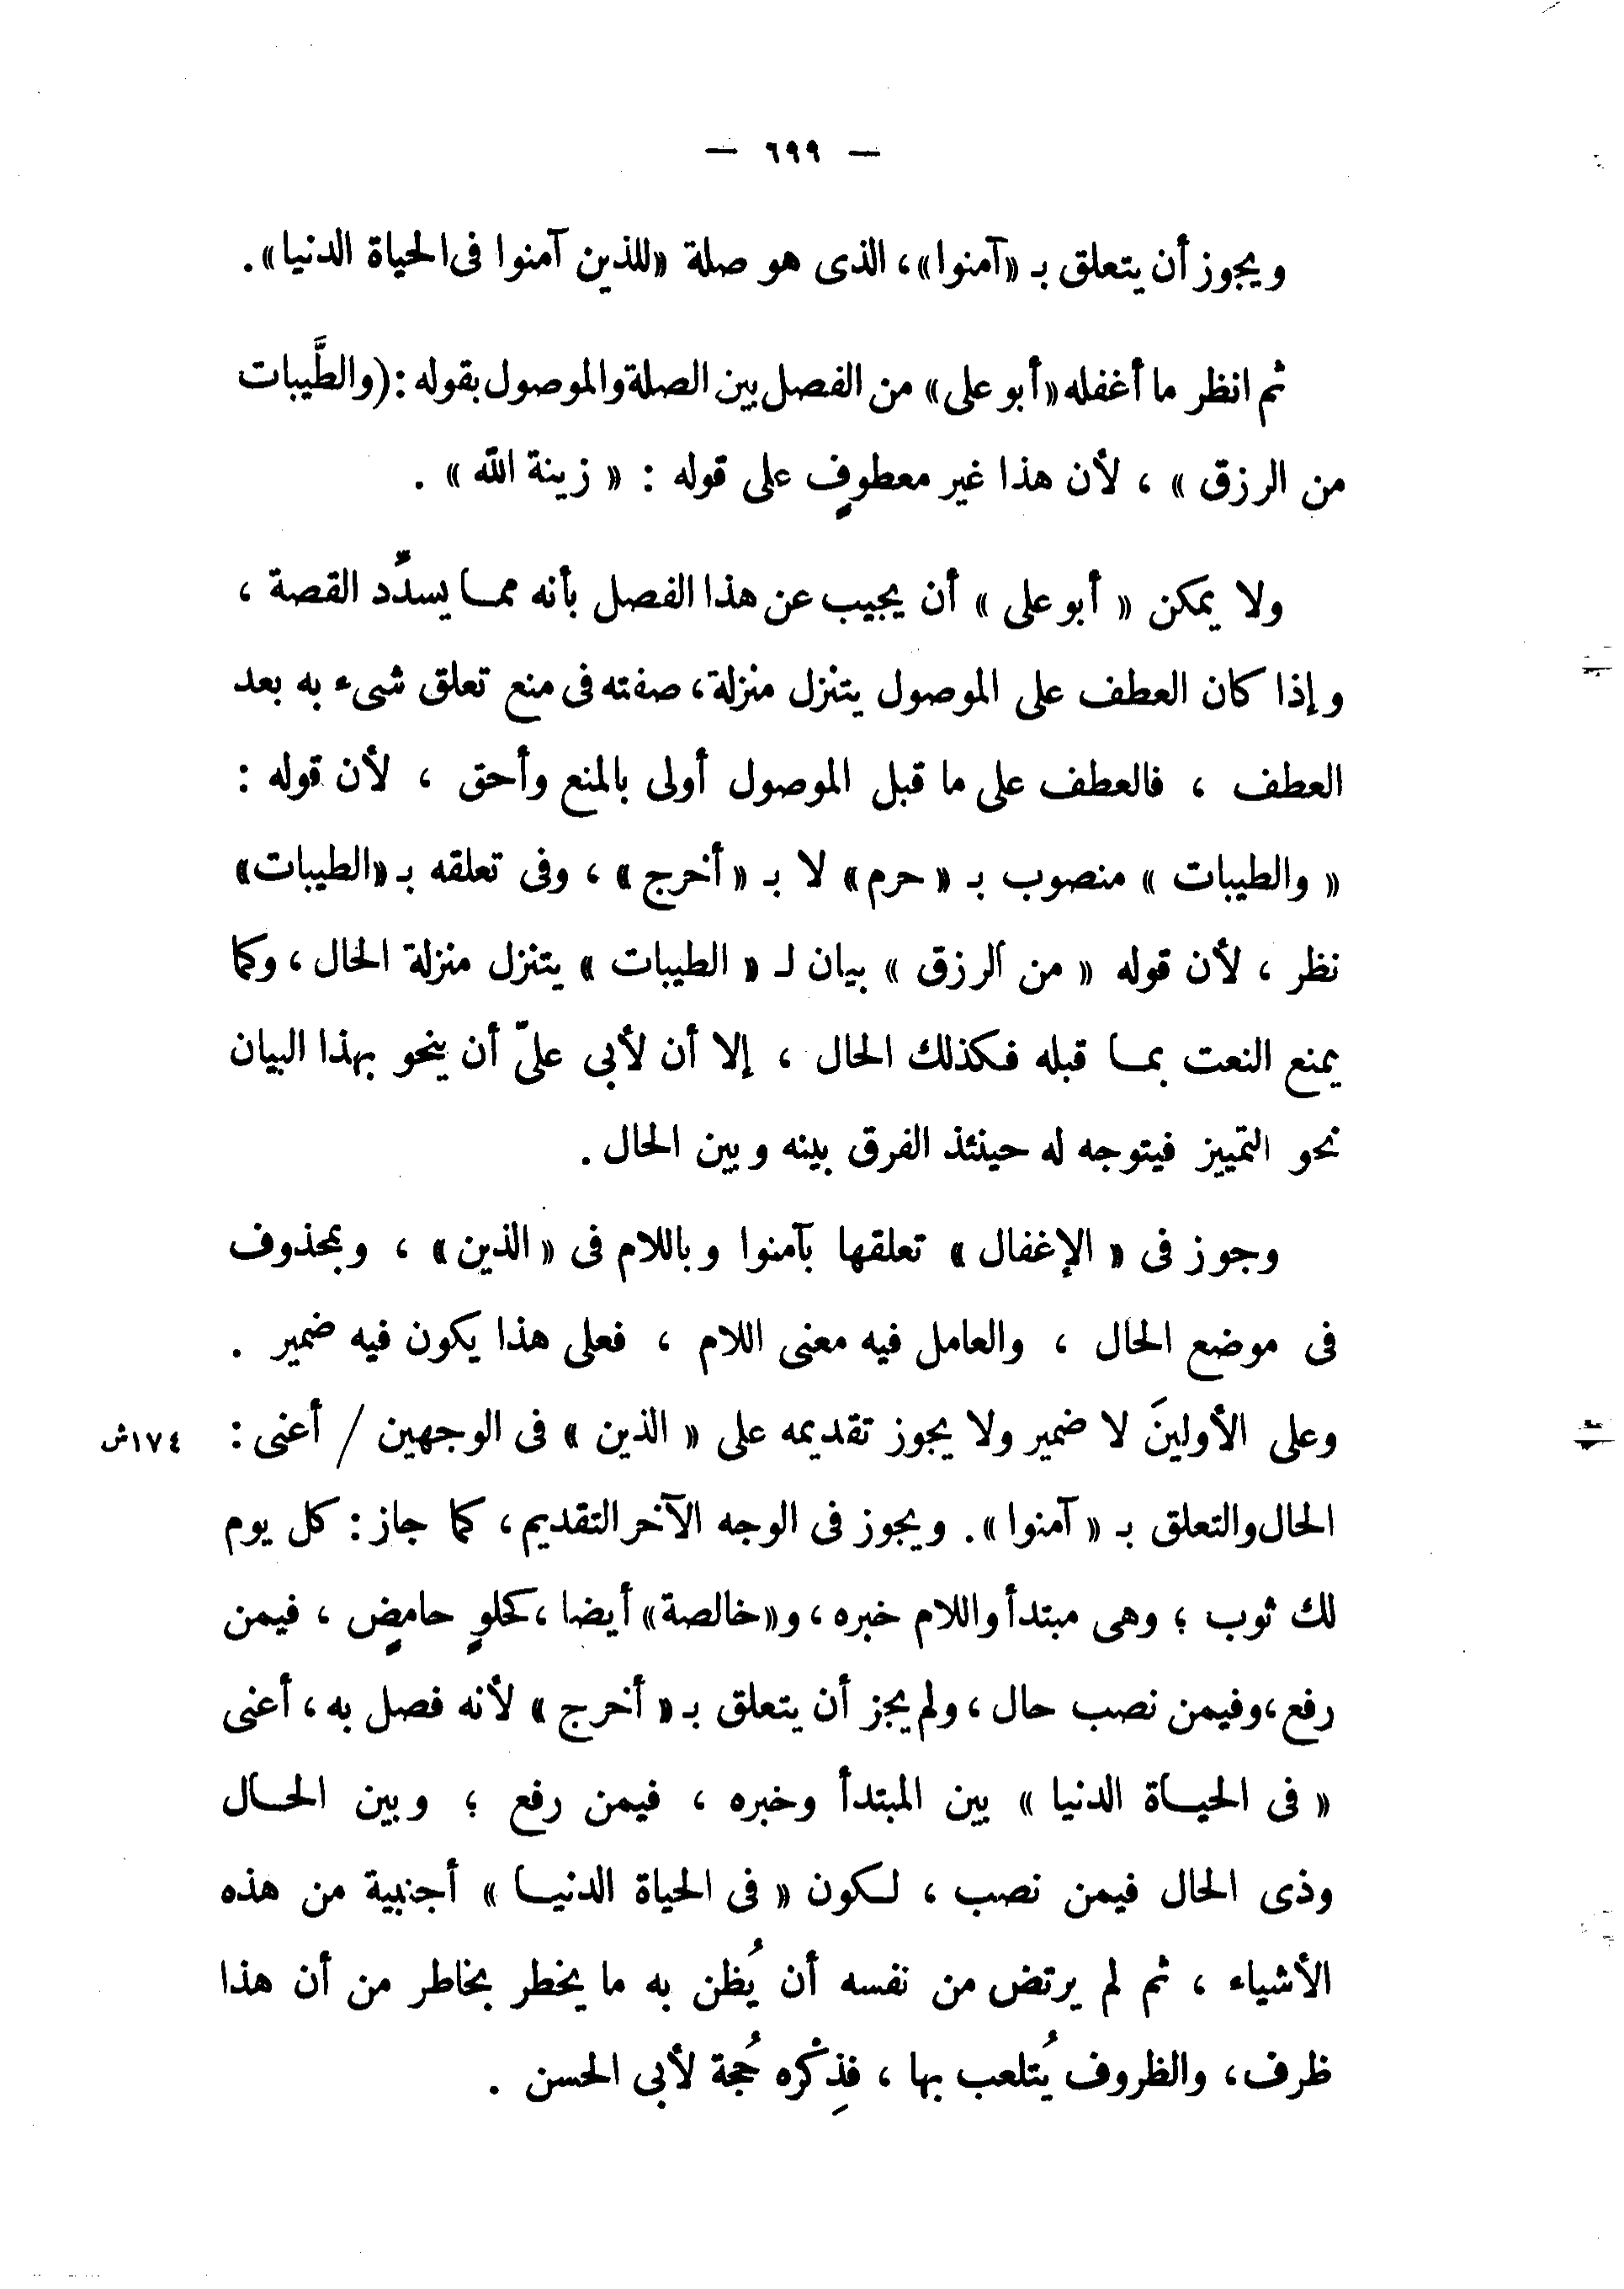 — ٦٩٩ —
ويجوز أن يتعلق بـ «آمنوا»، الذى هو صلة «للذين آمنوا فى الحياة الدنيا».
ثم انظر ما أغفله «أبو على» من الفصل بين الصلة والموصول بقوله: (والطَّيبات
من الرزق» ، لأن هذا غير معطوفٍ على قوله : « زينة الله » .
ولا يمكن « أبو على » أن يجيب عن هذا الفصل بأنه مما يسدِّد القصة ،
وإذا كان العطف على الموصول يتنزل منزلة، صفته فى منع تعلق شىء به بعد
العطف ، فالعطف على ما قبل الموصول أولى بالمنع وأحق ، لأن قوله :
« والطيبات » منصوب بـ « حرم» لا بـ « أخرج» ، وفى تعلقه بـ «الطيبات»
نظر ، لأن قوله « من الرزق » بيان لـ « الطيبات » يتنزل منزلة الحال ، وكما
يمنع النعت بما قبله فكذلك الحال ، إلا أن لأبى علىّ أن ينحو بهذا البيان
نحو التمييز فيتوجه له حينئذ الفرق بينه وبين الحال .
وجوز فى « الإغفال » تعلقها بآمنوا وباللام فى « الذين » ، وبمحذوف
فى موضع الحال ، والعامل فيه معنى اللام ، فعلى هذا يكون فيه ضمير .
وعلى الأولينَ لا ضمير ولا يجوز تقديمه على « الذين » فى الوجهين / أعنى : ١٧٤ش
الحال والتعلق بـ « آمنوا». ويجوز فى الوجه الآخر التقديم، كما جاز: كل يوم
لك ثوب ؛ وهى مبتدأ واللام خبره ، و«خالصة» أيضا ، كحلوٍ حامضٍ ، فيمن
رفع، وفيمن نصب حال ، ولم يجز أن يتعلق بـ « أخرج » لأنه فصل به ، أعنى
« فى الحياة الدنيا » بين المبتدأ وخبره ، فيمن رفع ؛ وبين الحال
وذى الحال فيمن نصب ، لكون « فى الحياة الدنيا » أجنبية من هذه
الأشياء ، ثم لم يرتض من نفسه أن يُظن به ما يخطر بخاطر من أن هذا
ظرف، والظروف يُتلعب بها ، فذِكْره حُجة لأبى الحسن .